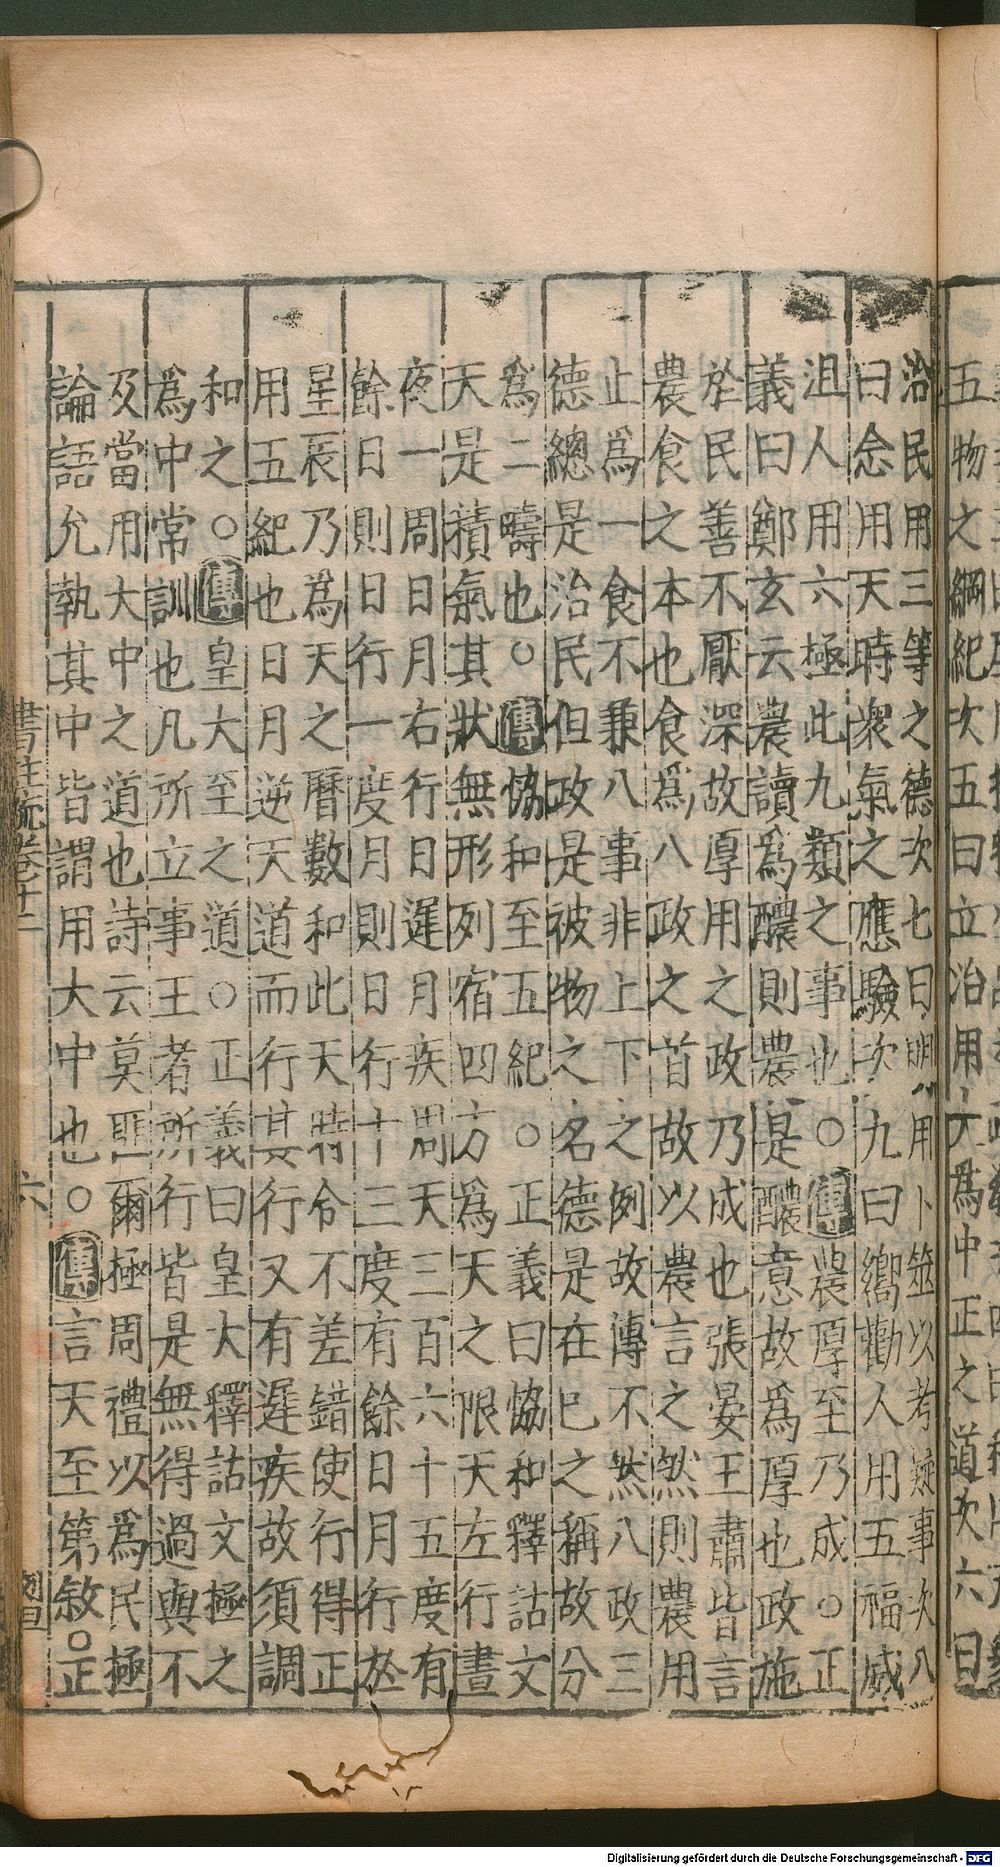 五物之綱紀次五曰立治用大爲中正之道次六曰
治民用三等之德次七曰明用卜筮以考疑事次八
曰念用天時衆氣之應驗次九曰嚮勸人用五福威
沮人用六極此九類之事也○傳農厚至乃成○正
義曰鄭玄云農讀爲醲則農是醲意故爲厚也政施
於民善不厭深故厚用之政乃成也張晏王肅皆言
農食之本也食爲八政之首故以農言之然則農用
止爲一食不兼八事非上下之例故傳不然八政三
德總是治民但政是被物之名德是在已之稱故分
爲二疇也○傳協和至五紀○正義曰協和釋詁文
天是積氣其狀無形列宿四方爲天之限天左行晝
夜一周日月右行日遲月疾周天三百六十五度有
餘日則日行一度月則日行十三度有餘日月行於
星辰乃爲天之曆數和此天時令不差錯使行得正
用五紀也日月逆天道而行其行又有遲疾故須調
和之○傳皇大至之道○正義曰皇大釋詁文極之
爲中常訓也凡所立事王者所行皆是無得過與不
及當用大中之道也詩云莫匪爾極周禮以爲民極
論語允執其中皆謂用大中也○傳言天至第敘○正
書注疏卷十二
六
Digitalisierung gefördert durch die Deutsche Forschungsgemeinschaft - DFG